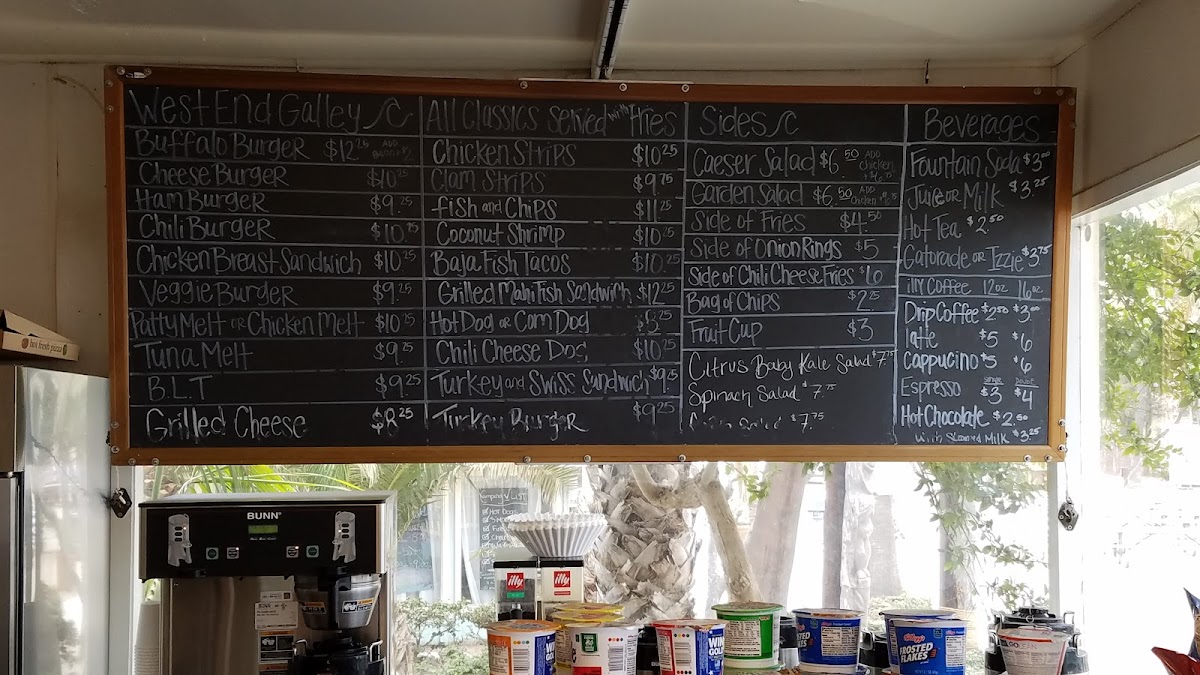 West End Galley
Buffalo Burger $12.25 ADD
Cheese Burger $10.25
Ham Burger $9.25
Chili Burger $10.25
Chicken Breast Sandwich $10.25
Veggie Burger $9.25
Patty Melt or Chicken Melt $10.25
Tuna Melt $9.25
B.L.T $9.25
Grilled Cheese $8.25
All Classics Served with Fries
Chicken Strips $10.25
Clam Strips $9.75
fish and Chips $11.25
Coconut Shrimp $10.25
Baja Fish Tacos $10.25
Grilled Mahi Fish Sandwich $12.25
Hot Dog or Corn Dog
Chili Cheese Dog $10.25
Turkey and Swiss Sandwich $9.25
Turkey Burger $9.25
Sides
Caeser Salad $6.50 ADD Chicken
Garden Salad $6.50 ADD Chicken
Side of Fries $4.50
Side of Onion Rings $5
Side of Chili Cheese Fries $6
Bag of Chips $2.25
Fruit Cup $3
Citrus Baby Kale Salad $7.75
Spinach Salad $7.75
Salad $7.75
Beverages
Fountain Soda $3.00
Juice or Milk $3.25
Hot Tea $2.50
Gatorade or Izzie $3.75
illy Coffee 12oz 16oz
Drip Coffee $2.50 $3.00
latte $5 $6
Cappucino $5 $6
Espresso Single $3 Double $4
Hot Chocolate $2.50
with Steamed Milk $3.25
hot fresh pizza
BUNN
illy
illy
Kellogg's
FROSTED FLAKES